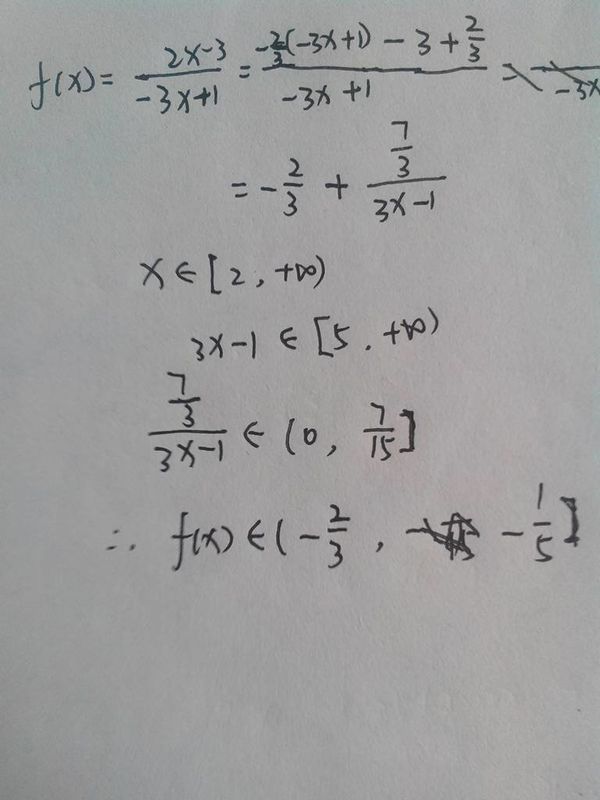 f(x) = \frac{2x-3}{-3x+1} = \frac{-\frac{2}{3}(-3x+1) - 3 + \frac{2}{3}}{-3x+1} =
= -\frac{2}{3} + \frac{\frac{7}{3}}{3x-1}
x ∈ [2, +∞)
3x-1 ∈ [5, +∞)
\frac{\frac{7}{3}}{3x-1} ∈ (0, \frac{7}{15}]
∴ f(x) ∈ (-\frac{2}{3}, -\frac{1}{5}]